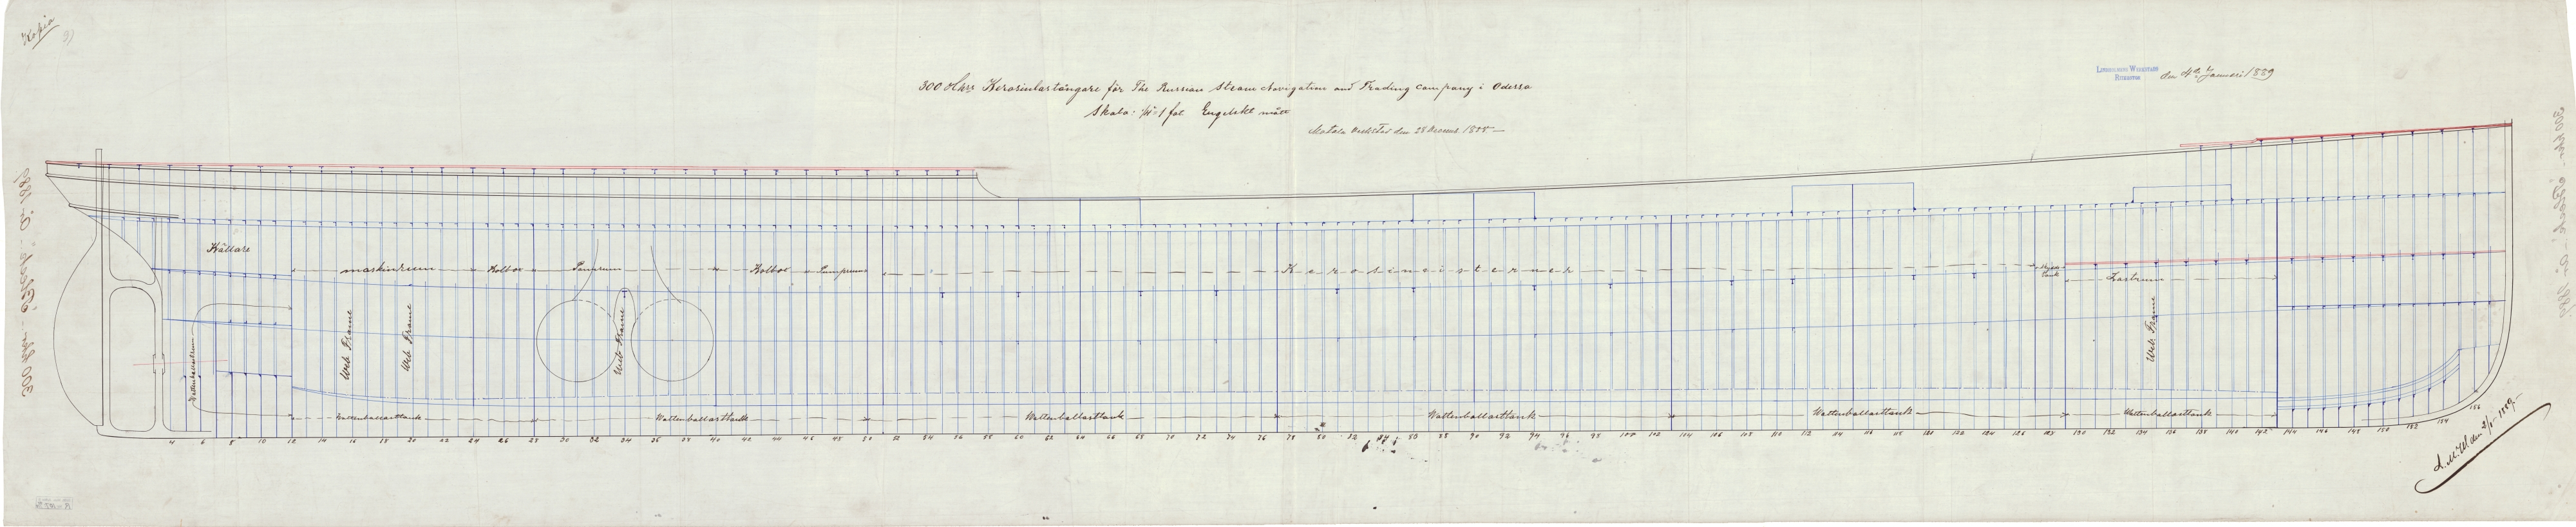 Kopia
9)
300 Hkrs Kerosinlastångare för The Russian Steam Navigation and Trading Company i Odessa
Skala: 1/4"=1 fot. Engelskt mått
Motala Verkstad den 28 December 1888
LINDHOLMENS WERKSTADS
RITKONTOR
den 4de Januari 1889
Källare
maskinrum
Kolbox
Pannrum
Kolbox
Pumprum
Kerosincisterner
tank
Lastrum
Vattenballastrum
Web Frame
Web Frame
Web Frame
Web Frame
Vattenballasttank
Vattenballasttank
Vattenballasttank
Vattenballasttank
Vattenballasttank
Vattenballasttank
4 6 8 10 12 14 16 18 20 22 24 26 28 30 32 34 36 38 40 42 44 46 48 50 52 54 56 58 60 62 64 66 68 70 72 74 76 78 80 82 84 86 88 90 92 94 96 98 100 102 104 106 108 110 112 114 116 118 120 122 124 126 128 130 132 134 136 138 140 142 144 146 148 150 152 154 156